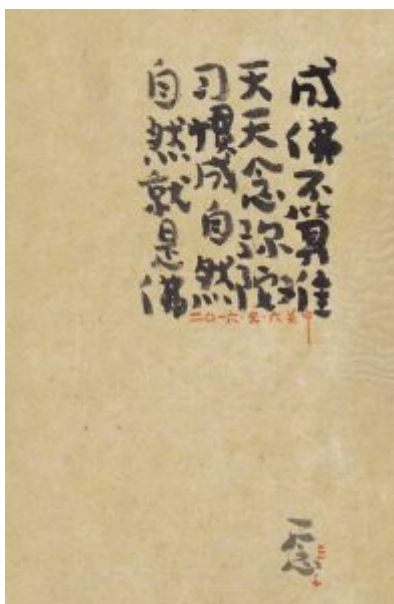 成佛不算难
天天念弥陀
习惯成自然
自然就是佛
二〇一六·五·六
一念